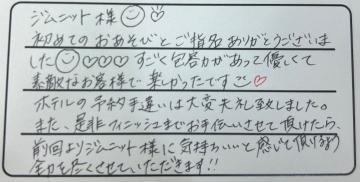 ジムニット様☺♡
初めてのおあそびとご指名ありがとうございま
した☺♡♡♡すごく包容力があって優しくて
素敵なお客様で楽しかったです☺♡
ホテルの予約手違いは大変失礼致しました。
また、是非フィニッシュまでお手伝いさせて頂けたら、
前回よりジムニット様に気持ちいいと感じて頂けるよう
全力を尽くさせていただきます!!